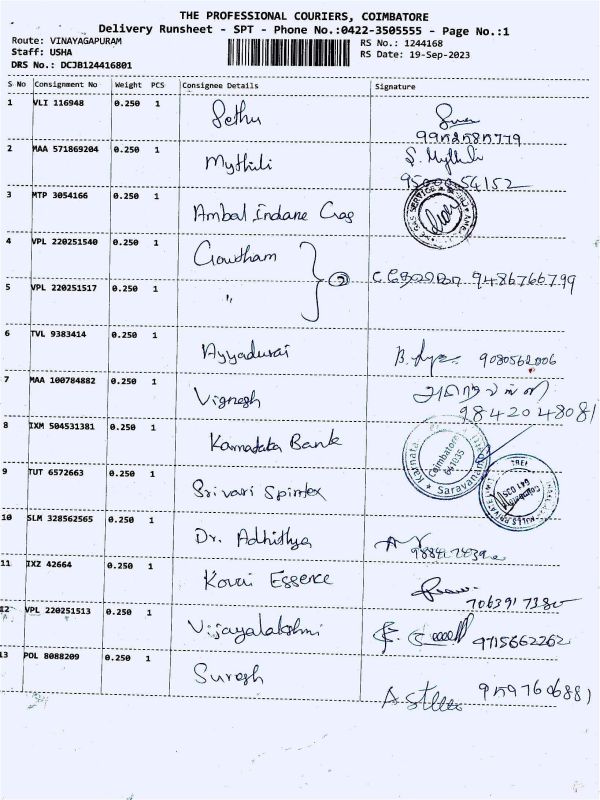 THE PROFESSIONAL COURIERS, COIMBATORE
Delivery Runsheet - SPT - Phone No.:0422-3505555 - Page No.:1
Route: VINAYAGAPURAM RS No.: 1244168
Staff: USHA RS Date: 19-Sep-2023
DRS No.: DCJB124416801
S No Consignment No Weight PCS Consignee Details Signature
1 VLI 116948 0.250 1 Sethu
9952585779
2 MAA 571869204 0.250 1 Mythili S. Mythili
9500054152
3 MTP 3054166 0.250 1 Ambal Indane Gas
4 VPL 220251540 0.250 1 Gowtham
② 9486766799
5 VPL 220251517 0.250 1 "
6 TVL 9383414 0.250 1 Ayyadurai 9080562006
7 MAA 100784882 0.250 1 Vignesh
9842048081
8 IXM 504531381 0.250 1 Karnataka Bank Karnata Coimbatore 641035 Saravana
9 TUT 6572663 0.250 1 Srivari Spintex
10 SLM 328562565 0.250 1 Dr. Adhithya
11 IXZ 42664 0.250 1 Kovai Essence
7063917380
12 VPL 220251513 0.250 1 Vijayalakshmi 9715662262
13 POL 8088209 0.250 1 Suresh 9597606881